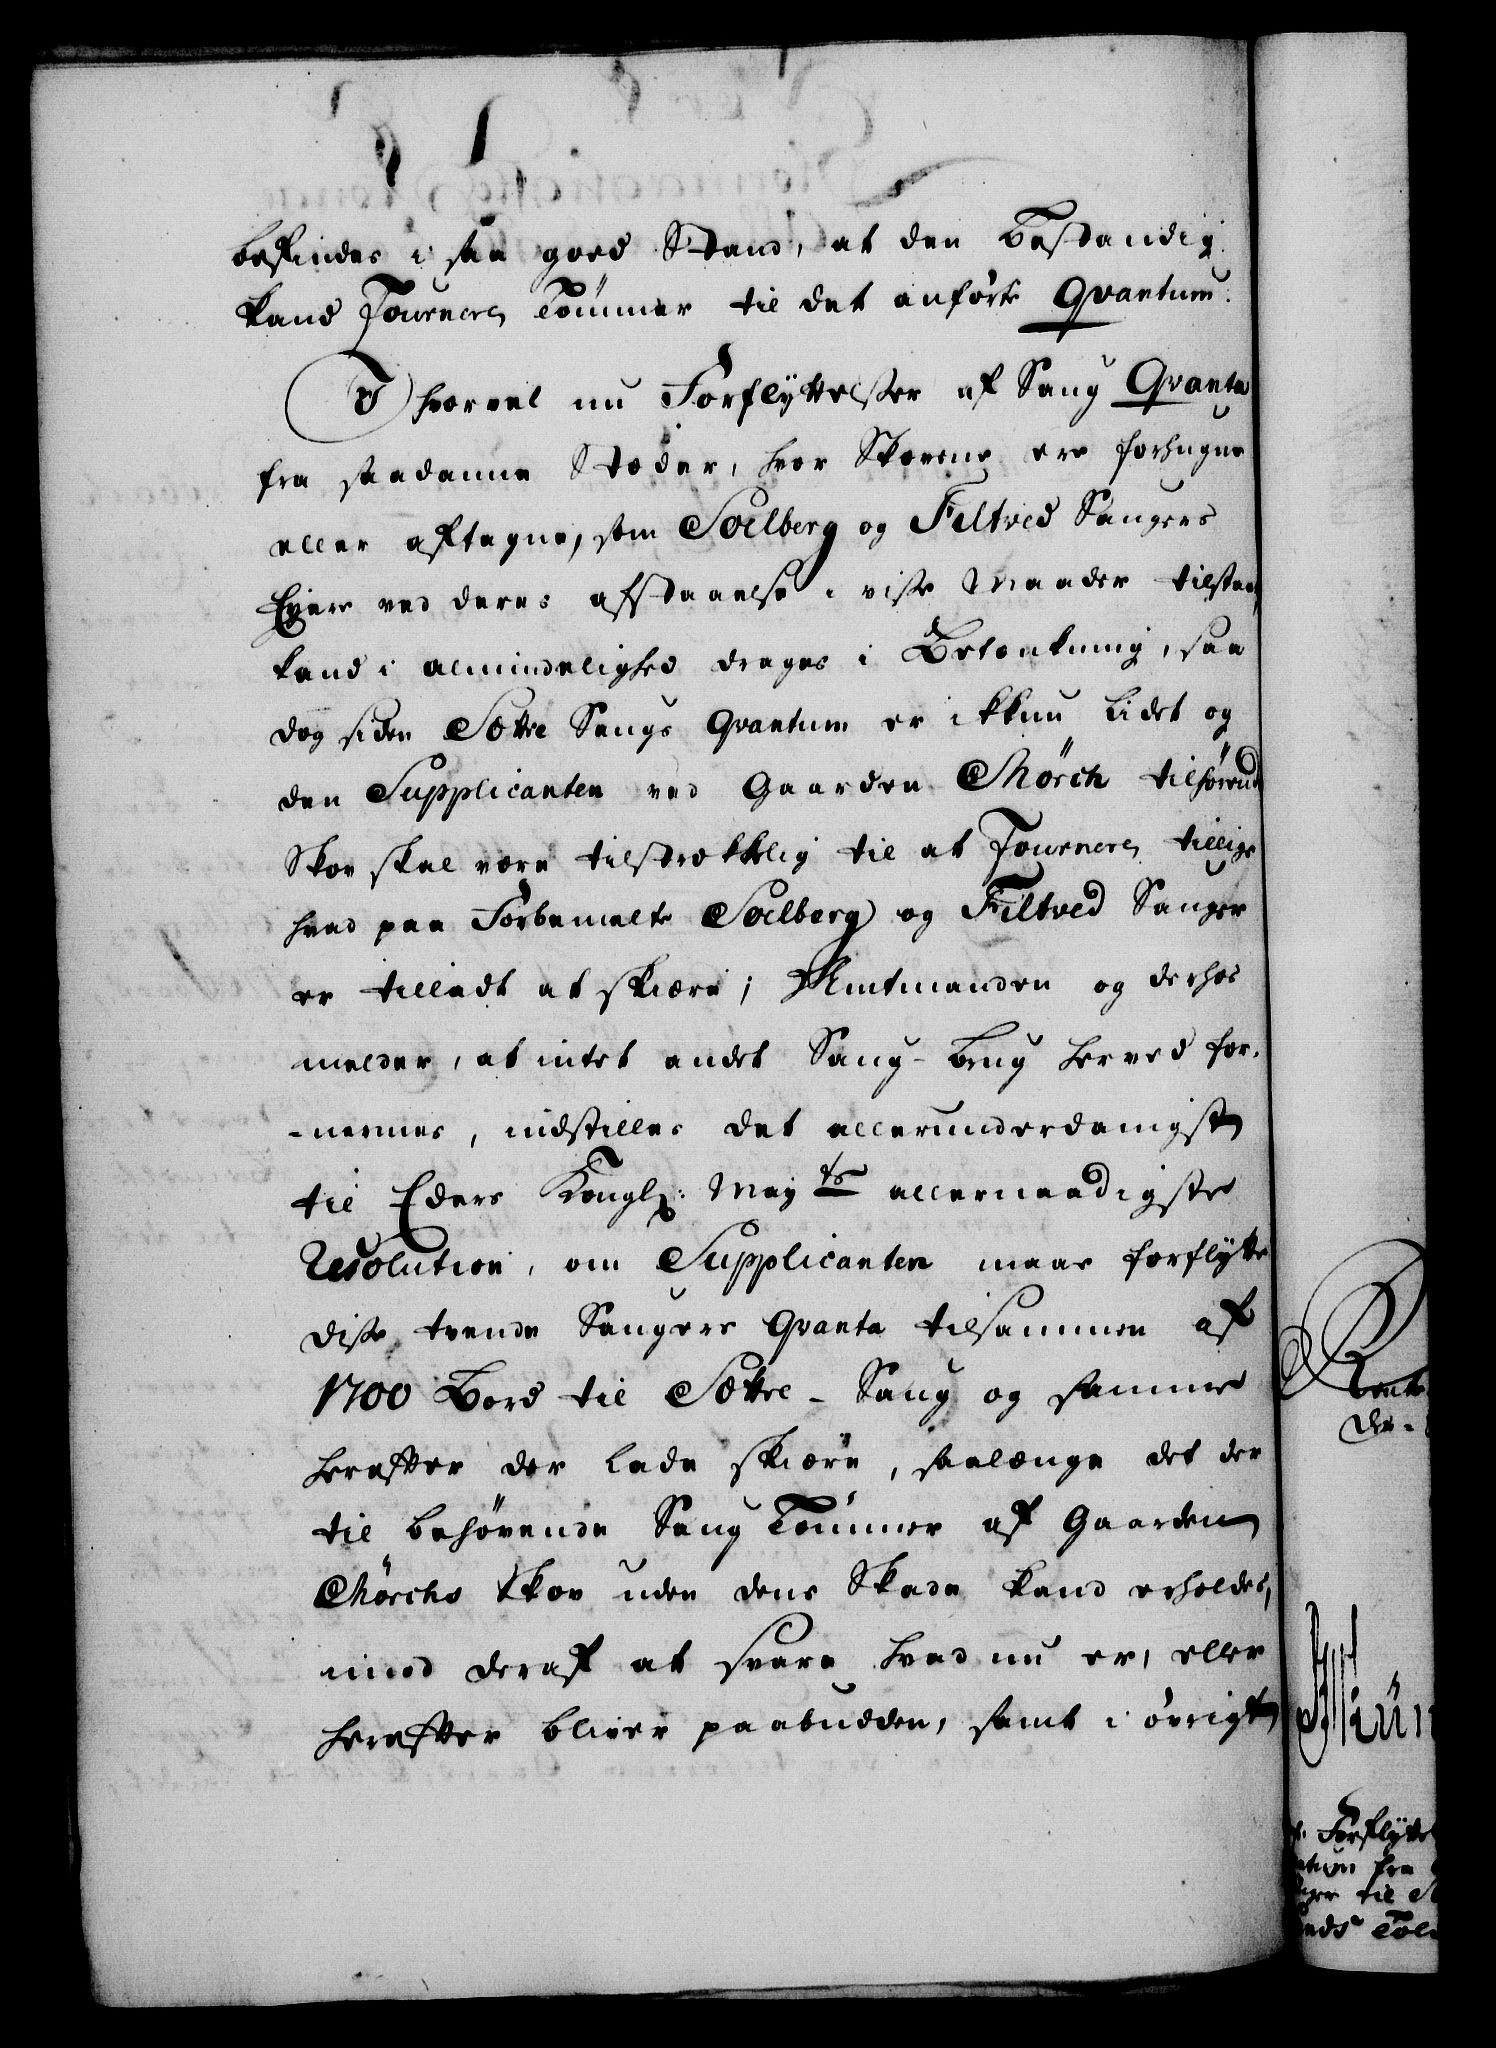 befindes i saa goed Stand, at den bestandig
kand Fournere Tömmer til det anförte Qvantum.
I hvorvel nu Forflÿttelser af Saug Qvanta
fra saadanne Stæder, hvor Skovene ere forhugne
eller aftagne, som Soelberg og Filtved Saugers
Eyere ved deres afstaaelse i visse Maader tilstaae,
kand i almindelighed drages i Betænkning, saa
dog siden Sættre Saugs Qvantum er ikkun lidet og
den Supplicanten ved Gaarden Mörch tilhörende
Skov skal være tilstrekkelig til at Fournere tillige
hvad paa Forbemelte Soelberg og Filtved Sauger
er tilladt at skiære; Amtmanden og derhos
melder, at intet andet Saug-brug herved for-
-nermes, indstilles det allerunderdanigst
til Eders Kongl: May ts allernaadigste
Resolution, om Supplicanten maae forflÿtte
disse tvende Saugers Qvanta tilsammen af
1700 Bord til Sættre-Saug og samme
herefter der lade skiære, saalænge det der
til behövende Saug Tömmer af Gaarden
Mörchs Skov uden dens Skade kand erholdes,
imod deraf at svare hvad nu er, eller
herefter bliver paabudden, samt i övrigt
Forflÿtte
fra
til